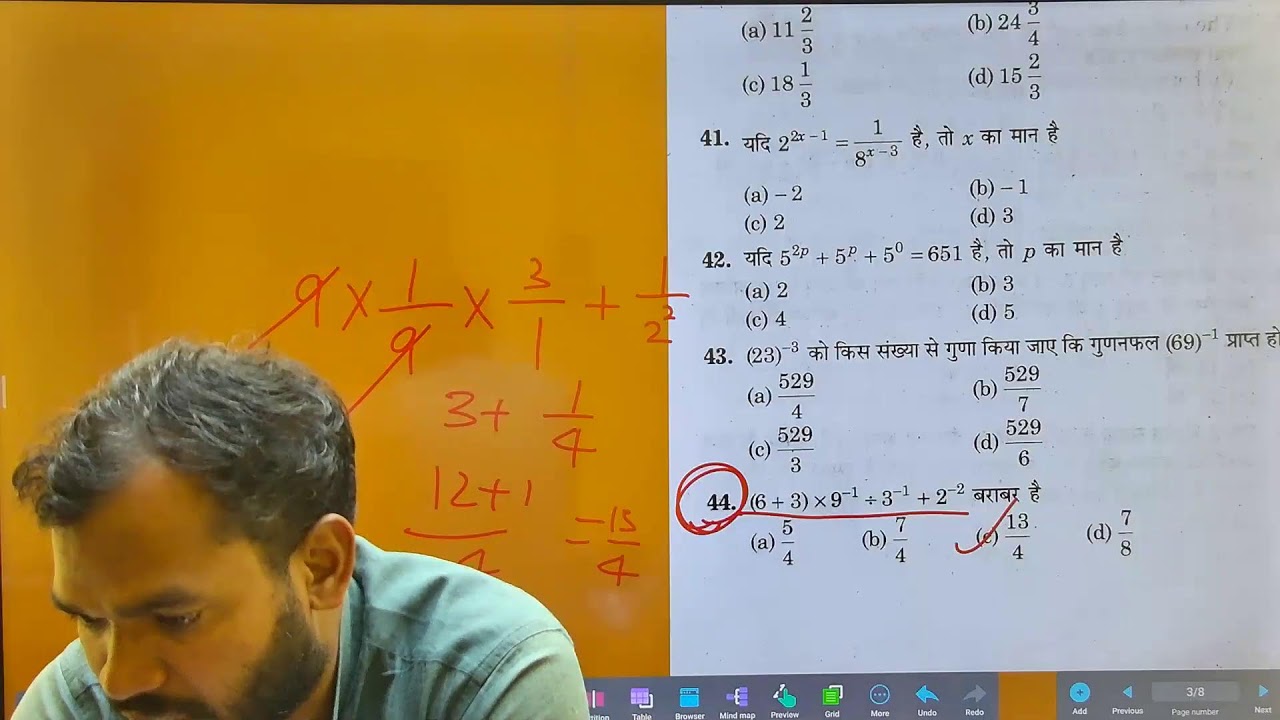 (a) 11 2/3 (b) 24 3/4
(c) 18 1/3 (d) 15 2/3
41. यदि 2^(2x – 1) = 1/8^(x – 3) है, तो x का मान है
(a) – 2 (b) – 1
(c) 2 (d) 3
42. यदि 5^(2p) + 5^p + 5^0 = 651 है, तो p का मान है
(a) 2 (b) 3
(c) 4 (d) 5
43. (23)^(–3) को किस संख्या से गुणा किया जाए कि गुणनफल (69)^(–1) प्राप्त हो
(a) 529/4 (b) 529/7
(c) 529/3 (d) 529/6
44. (6 + 3) × 9^(–1) ÷ 3^(–1) + 2^(–2) बराबर है
(a) 5/4 (b) 7/4 (c) 13/4 (d) 7/8
9 × 1/9 × 3/1 + 1/2^2
3 + 1/4
12+1/4 = 13/4
Table Browser Mind map Preview Grid More Undo Redo Add Previous 3/8 Page number Next